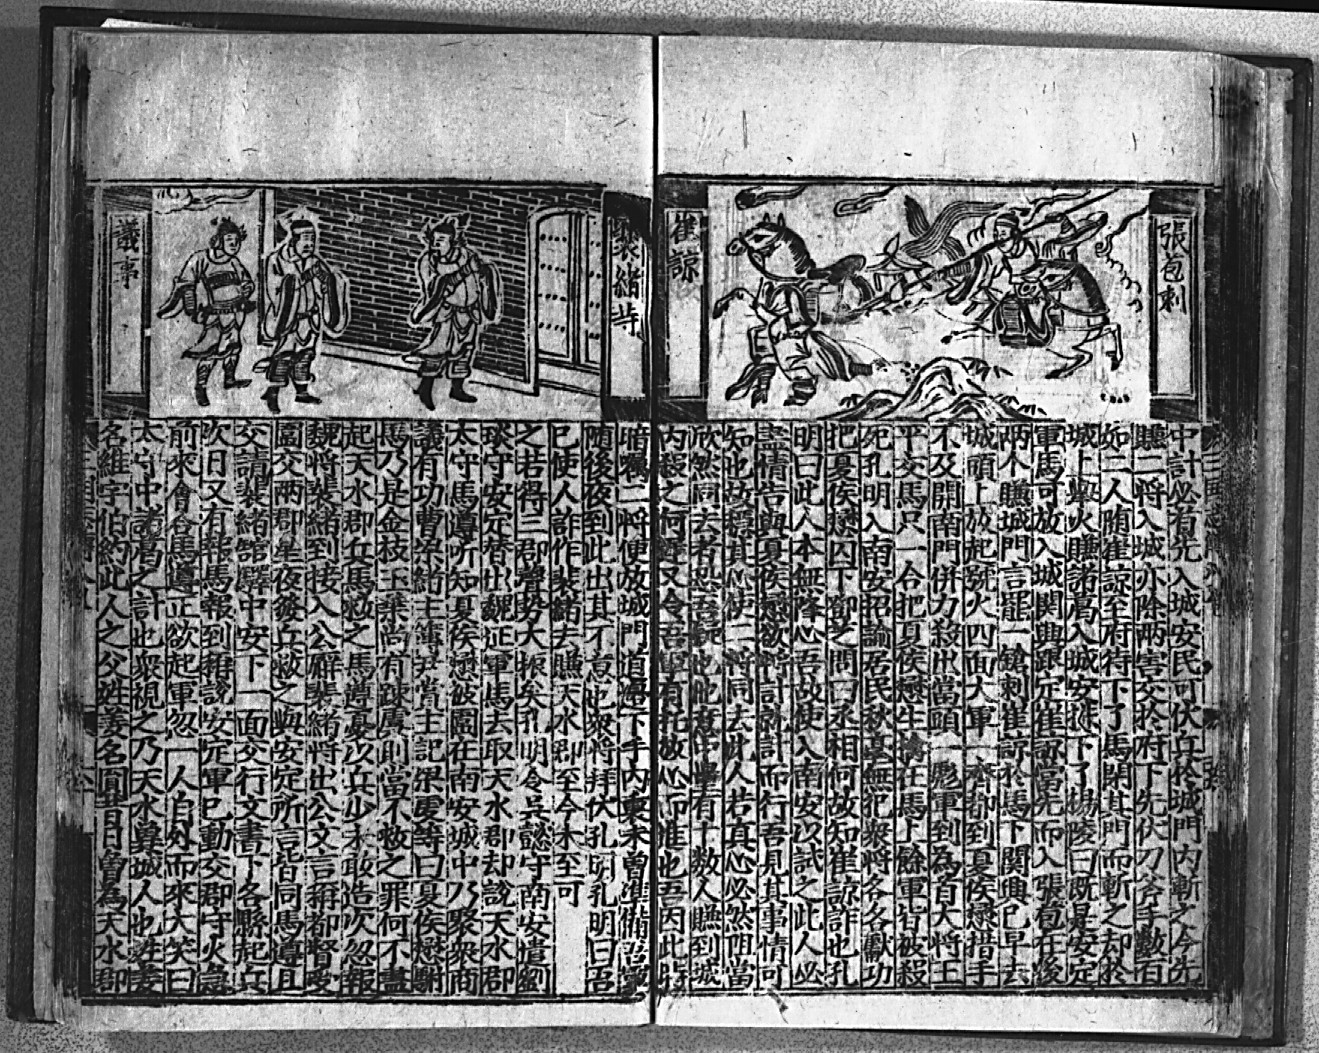 張苞刺
崔諒
中計必有先入城安民可伏兵於城門内斬之今先
賺二將入城亦除兩害交於府下先伏刀斧手數百
如二人隨崔諒至府待下了馬閉其門而斬之却於
城上舉火賺諸葛入城安排下了楊陵曰既是安定
軍馬可放入城関興跟定崔諒當先而入張苞在後
兩个賺城門言罷一鎗刺崔諒於馬下関興已早去
城頭上放起號火四面大軍一齊抑到夏侯懋措手
不及開南門併力殺出當頭一彪軍到為首大將王
平交馬只一合把夏侯懋生擒在馬上餘軍皆被殺
死孔明入南安招諭居民秋毫無犯衆將各各獻功
把夏侯懋囚下鄧芝問曰丞相何故知崔諒詐也孔
明曰此人本無降心吾故使入南安以試之此人必
盡情告與夏侯懋欲將計就計而行吾見其事情可
知也故穩其心使二將同去此人若真心必然阻當
欣然同去者恐吾疑也他意中畢有十数人賺到城
内殺之何遲又令吾軍有托放心而進也吾因此特
裴緒等
議事
暗囑二將便放城門道邊下手内東未曾準備吾軍
隨後夜到此出其不意也衆將拜伏孔明孔明曰吾
已使人詐作裴緒去賺天水郡至今未至可
之若得三郡聲勢大振矣孔明令吳懿守南安遣劉
琰守安定替出魏延軍馬去取天水郡却說天水郡
太守馬遵听知夏侯懋被圍在南安城中乃聚衆商
議有功曹梁緒主簿尹賞主記梁虔等曰夏侯懋駙
馬乃是金枝玉葉尚有疎虞則當不救之罪何不盡
起天水郡兵馬救之馬遵憂以兵少未敢造次忽報
魏將裴緒到接入公廨裴緒將出公文言稱都督受
圍交兩郡星夜發兵救之與安定所言皆同馬遵且
交請裴緒舘驛中安下一面交行文書下各縣起兵
次日又有報馬報到稱說安定軍已動交郡守火急
前來會合馬遵正欲起軍忽一人自外而來大笑曰
太守中諸葛之計也衆視之乃天水冀城人也姓姜
名維字伯約此人之父姓姜名冏昔日曾為天水郡